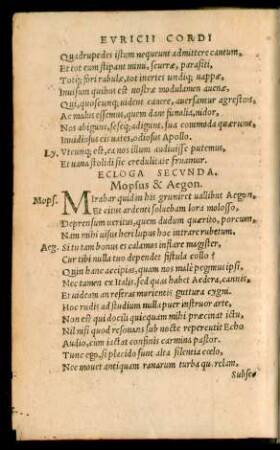 EVRICII CORDI
Quadrupedes istum nequeunt admittere cantum,
Et tot eum stipant mimi, scurræ, parasiti,
Totq; fori rabulæ, tot inertes undiq; uappæ,
Inuisum quibus est nostræ modulamen auenæ,
Qui, quoscunq; uident cauere, auersantur agrestes,
Ac malus essemus, quem dam famulia, nidor,
Nos abigunt, seseq; adigunt, sua commoda quærunt,
Inuidiosus eis uates, odiosus Apollo.
Ly. Vtcunq; est, ea nos illum audiuisse putemus,
Et uana stolidi sic credulitate fruamur.
ECLOGA SECVNDA.
Mopsus & Aegon.
Mops. Mirabar quid im his grunniret uallibus Aegon,
Et citus ardenti soluebam lora molosso,
Deprensum ueritus, quem dudum quærito, porcum,
Nam mihi uisus heri lupus hoc intrare rubetum.
Aeg. Si tu tam bonus es calamos inflare magister,
Cur tibi nulla tuo dependet fistula collo?
Quin hanc accipias, quam nos malè pegimus ipsi,
Nec tamen ex Italis sed quas habet Aedera, cannis,
Et uideam an referas morientis guttura cygni.
Hoc rudis ad studium nulla puer instruor arte,
Non est qui docili quicquam mihi præcinat ictu,
Nil nisi quod resonans sub nocte reperentit Echo
Audio, cum iactat confinis carmina pastor.
Tunc ego, si placido sunt alta silentia cœlo,
Nec mouet antiquam ranarum turba querelam.
Subse